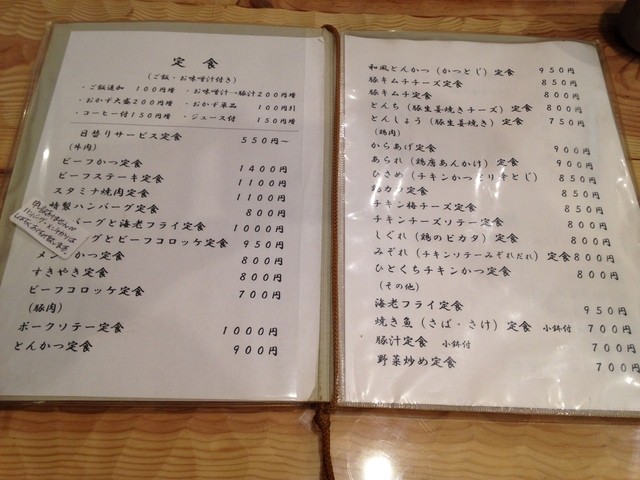 定食
(ご飯・お味噌汁付き)
・ご飯追加 100円増 ・お味噌汁→豚汁200円増
・おかず大盛200円増 ・おかず単品 100円引
・コーヒー付150円増 ・ジュース付 150円増
日替りサービス定食 550円~
(牛肉)
ビーフかつ定食 1400円
ビーフステーキ定食 1100円
スタミナ焼肉定食 1100円
特製ハンバーグ定食 800円
バーグと海老フライ定食 1000円
グとビーフコロッケ定食 950円
メンチかつ定食 800円
すきやき定食 800円
ビーフコロッケ定食 700円
(豚肉)
ポークソテー定食 1000円
とんかつ定食 900円
和風とんかつ(かつとじ)定食 950円
豚キムチチーズ定食 850円
豚キムチ定食 800円
とんち(豚生姜焼きチーズ)定食 800円
とんしょう(豚生姜焼き)定食 750円
(鶏肉)
からあげ定食 900円
あられ(鶏唐あんかけ)定食 900円
ひさめ(チキンかつとりキとじ) 850円
鶏カツ定食 850円
チキン梅チーズ定食 850円
チキンチーズソテー定食 800円
しぐれ(鶏のピカタ)定食 800円
みぞれ(チキンソテーみぞれだれ)定食 800円
ひとくちチキンかつ定食 800円
(その他)
海老フライ定食 950円
焼き魚(さば・さけ)定食 小鉢付 700円
豚汁定食 小鉢付 700円
野菜炒め定食 700円